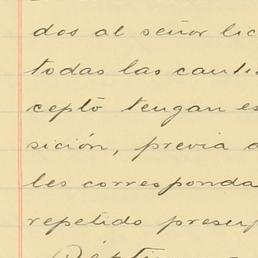 dos al señor lic
todas las canti
cepto tengan es
sición, previa
les corresponda
repetido presup